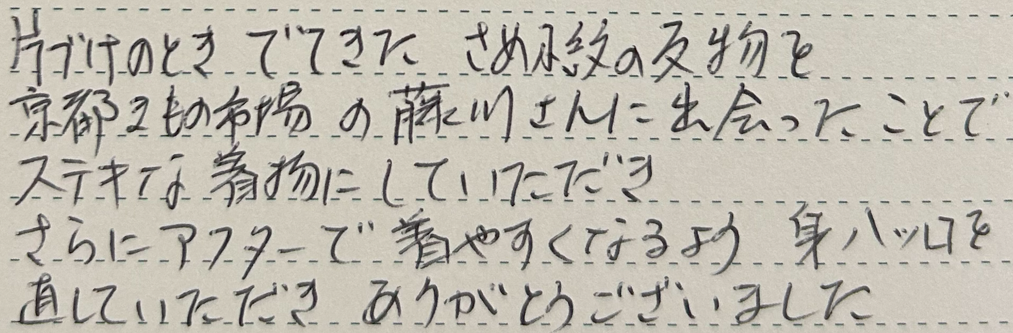 片づけのとき でてきた さめ小紋の反物を
京都きもの市場 の 藤川さんに出会ったことで
ステキな着物にしていただき
さらにアフターで着やすくなるよう 身八ツ口を
直していただき ありがとうございました